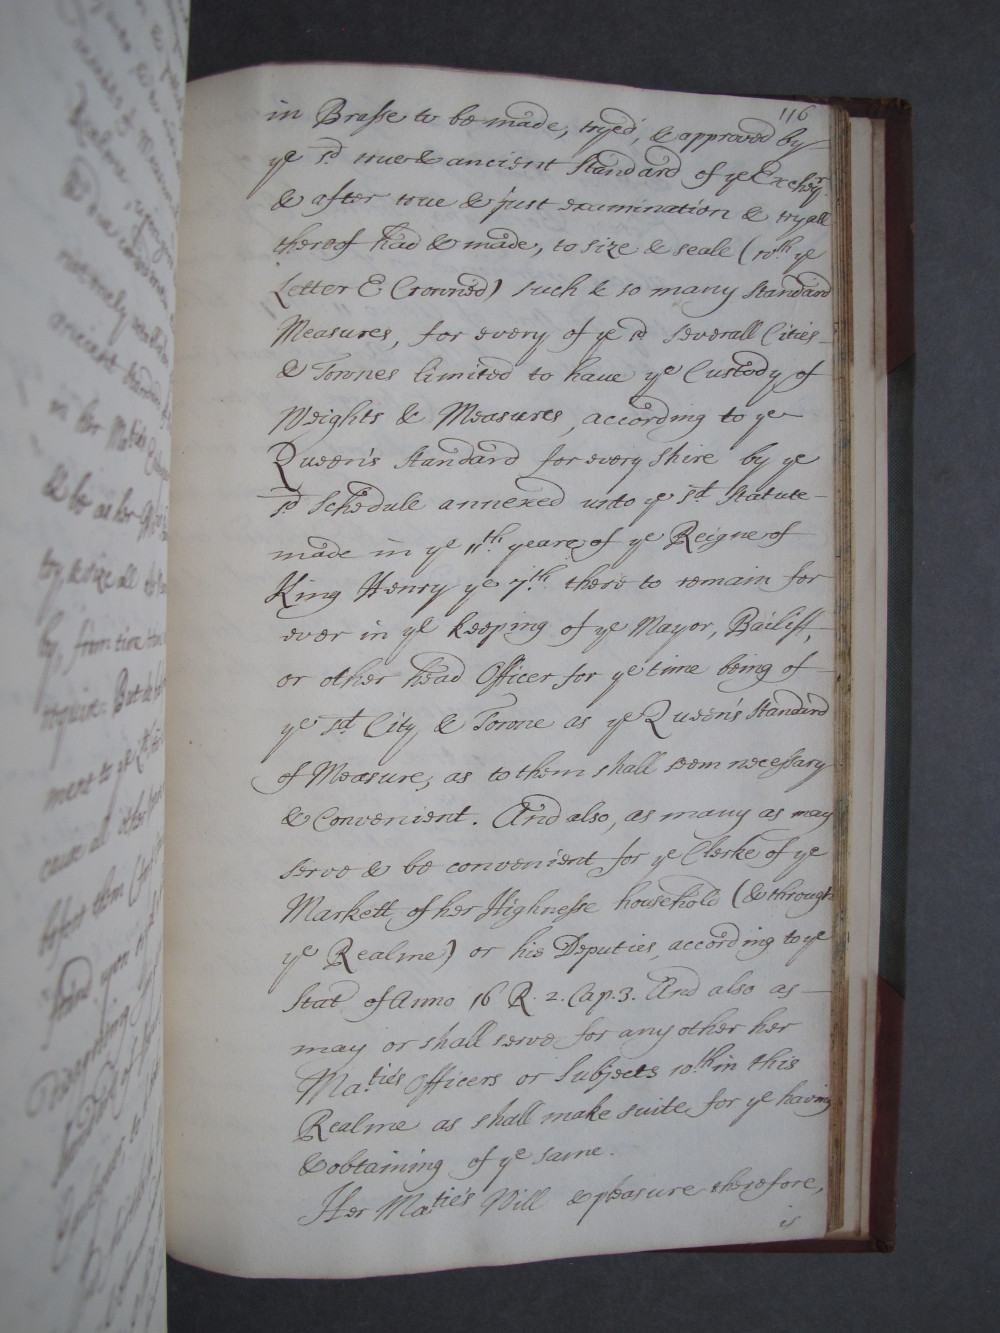 116
in Brasse to be made, tryed, & approved by
ye sd true & ancient Standard of ye Excheqr.
& after true & just examination & tryall
thereof had & made, to size & seale (wth ye
Letter E Crowned) such & so many Standard
Measures, for every of ye sd severall Cities
& Townes limited to have ye Custody of
Weights & Measures, according to ye
Queen's Standard for every shire by ye
sd Schedule annexed unto ye sd Statute
made in ye 11th yeare of ye Reigne of
King Henry ye 7th there to remain for
ever in ye keeping of ye Mayor, Bailiff,
or other head Officer for ye time being of
ye sd City & Towne as ye Queen's Standard
of Measure, as to them shall seem necessary
& Convenient. And also, as many as may
serve & be convenient for ye Clerke of ye
Markett, of her Highnesse household (& through
ye Realme) or his Deputies, according to ye
Stat of Anno 16 R. 2. Cap. 3. And also as
may or shall serve for any other her
Maties Officers or Subjects wthin this
Realme as shall make suite for ye having
& obtaining of ye same.
Her Maties Will & pleasure therefore,
is